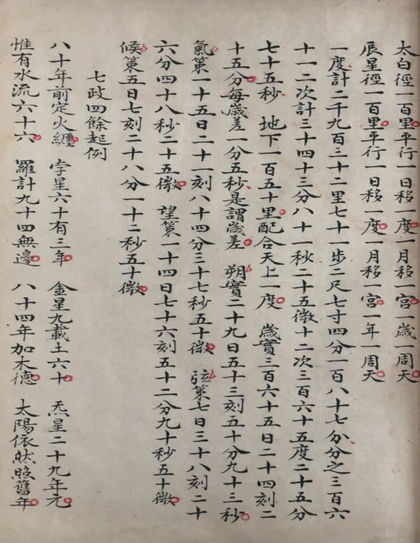 太白徑一百里平行一日移一度一月移一宮一歲一周天
辰星徑一百里平行一日移一度一月移一宮一年一周天
一度計二千九百三十二里七十一步二尺七寸四分一百八十七分分之三百六
十一二次計三十四十三分八十一秒二十五微十二次三百六十五度二十五分
七十五秒 地下一百五十里配合天上一度 歲實三百六十五日二十四刻二
十五分每歲差一分五秒是謂歲差 朔實二十九日五十三刻五十分九十三秒
氣策一十五日二十一刻八十四分三十七秒五十微 弦策七日三十八刻二十
六分四十八秒二十五微 望策一十四日七十六刻五十二分九十秒五十微
候策五日七刻二十八分一十二秒五十微
七政四餘起例
八十年前定火纏 孛星六十有三年 金星九載土六十 炁星二十九年元
惟有水流六十六 羅計九十四無邊 八十四年加木德 太陽依然照舊年